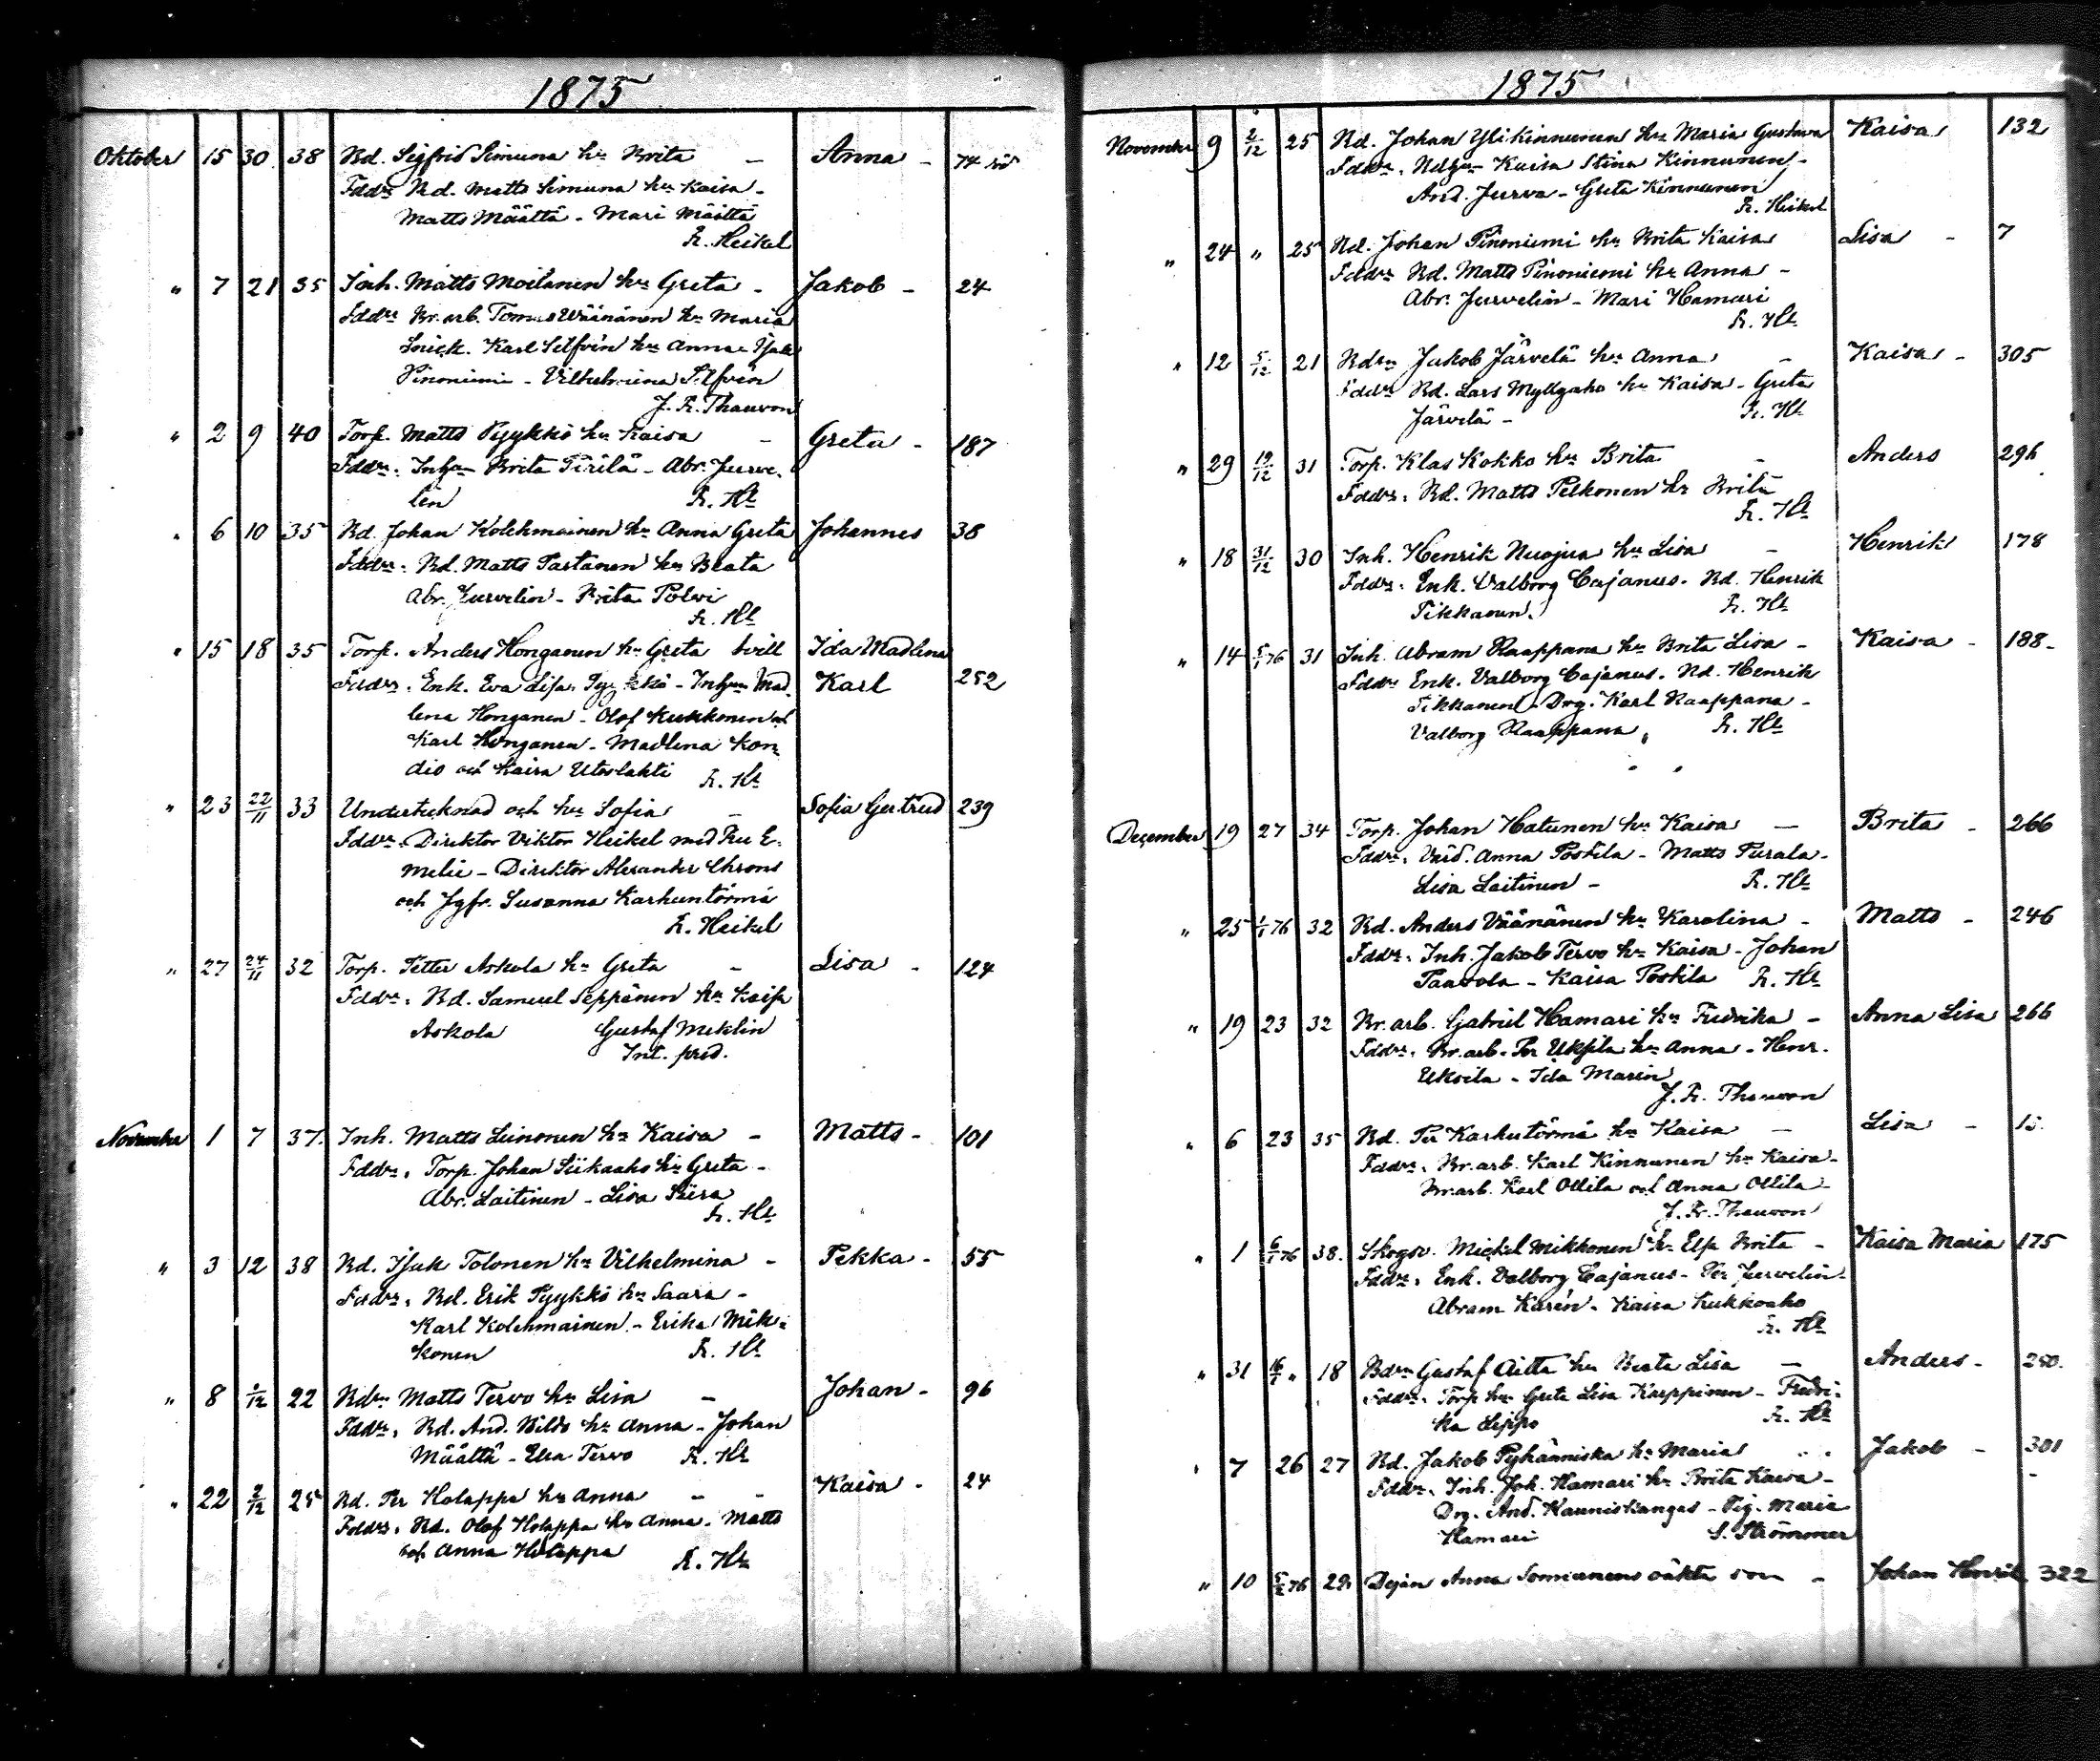 1875
Oktober 15 30 38 Bd. Sigfrid Simuna hu Brita - Anna - 74
Fddr: Bd. Matts Simuna hu Kaisa -
Matts Määttä - Mari Määttä
F. Heikel
" 7 21 35 Inh. Matts Moilanen hu Greta - Jakob - 24
Fddr Br. arb. Tomas Wäinänen hu Maria
Snick. Karl Silfvén hu Anna - Isak
Pinoniemi - Vilhelmina Silfvén
J. F. Thauvon
" 2 9 40 Torp. Matts Pyykkö hu Kaisa - Greta - 187
Fddr: Inhn Brita Pirilä - Abr. Jurve-
lin F. Hl
" 6 10 35 Bd. Johan Kolehmainen hu Anna Greta Johannes 38
Fddr: Bd. Matts Partanen hu Beata
Abr. Jurvelin - Brita Polvi
F. Hl
" 15 18 35 Torp. Anders Honganen hu Greta tvill Ida Madlena
Fddr: Enk. Eva Lisa Pyykkö - Inhn Mad- Karl 252
lena Honganen - Olof Kukkonen och
Karl Honganen - Madlena Kon-
dio och Kaisa Utoslahti F. Hl
" 23 22/11 33 Undertecknad och hu Sofia - Sofia Gertrud 239
Fddr: Direktor Viktor Heikel med Fru E-
melie - Direktör Alexander Chrons
och Jgfr. Susanna Karhuntörmä
F. Heikel
" 27 24/11 32 Torp. Petter Askola hu Greta - Lisa - 124
Fddr: Bd. Samuel Seppänen hu Kaisa
Askola Gustaf Meklin
Int. pred.
November 1 7 37. Inh. Matts Leinonen hu Kaisa - Matts - 101
Fddr: Torp. Johan Siikaaho hu Greta -
Abr. Laitinen - Lisa Siira
F. Hl
" 3 12 38 Bd. Isak Tolonen hu Vilhelmina - Pekka - 55
Fddr: Bd. Erik Pyykkö hu Saara -
Karl Kolehmainen - Erika Mik-
konen F. Hl
" 8 1/12 22 Bdsn Matts Tervo hu Lisa - Johan - 96
Fddr: Bd. And. hu Anna - Johan
Määttä - Elsa Tervo F. Hl
" 22 2/12 25 Bd. Per Holappa hu Anna - - Kaisa - 24
Fddr: Bd. Olof Holappa hu Anna. Matts
och Anna Holappa F. Hl
1875
November 9 2/12 25 Bd. Johan Ylikinnunen hu Maria Gustava Kaisa 132
Fddr: Kaisa Stina Kinnunen -
And. Jurva - Greta Kinnunen
F. Heikel
" 24 " 25 Bd. Johan Pinoniemi hu Brita Kaisa Lisa - 7
Fddr Bd. Matts Pinoniemi hu Anna -
Abr. Jurvelin - Mari Hamari
F. Hl.
" 12 5/12 21 Bdsn Jakob Järvelä hu Anna - Kaisa - 305
Fddr Bd. Lars Myllyaho hu Kaisa - Greta
Järvelä - F. Hl
" 29 19/12 31 Torp. Klas Kokko hu Brita - Anders 296
Fddr: Bd. Matts Pelkonen hu Brita
F. Hl
" 18 31/12 30 Inh. Henrik Nuojua hu Lisa - Henrik 178
Fddr: Enk. Valborg Cajanus. Bd. Henrik
Tikkanen. F. Hl
" 14 5/1 76 31 Inh. Abram Raappana hu Brita Lisa - Kaisa - 188 -
Fddr Enk. Valborg Cajanus. Bd. Henrik
Tikkanen. Drg. Karl Raappana -
Valborg Raappana, F. Hl
" "
December 19 27 34 Torp. Johan Hatunen hu Kaisa - Brita - 266
Fddr: Anna Postila - Matts Purala -
Lisa Laitinen - F. Hl
" 25 1/1 76 32 Bd. Anders Väänänen hu Karolina - Matts - 246
Fddr: Inh. Jakob Tervo hu Kaisa - Johan
Paavola - Kaisa Postila F. Hl
" 19 23 32 Br. arb. Gabriel Hamari hu Fredrika - Anna Lisa 266
Fddr: Br. arb. Per Uksila hu Anna - Henr.
Uksila - Ida Marin
J. F. Thauvon
" 6 23 35 Bd. Per Karhutörmä hu Kaisa - Lisa - 15.
Fddr: Br. arb. Karl Kinnunen hu Kaisa -
Br. arb. Karl Ollila och Anna Ollila
J. Fr. Thauvon
" 1 6/1 76 38. Skogsv. Mickel Mikkonen hu Elsa Brita - Kaisa Maria 175
Fddr: Enk. Valborg Cajanus - Per Jurvelin -
Abram Karén - Kaisa Kukkoaho
F. Hl
" 31 16/1 " 18 Bdsn Gustaf Aitta hu Beata Lisa - Anders - 250.
Fddr: Torp. hu Greta Lisa Karppinen - Fredri-
ka Leppo F. Hl
" 7 26 27 Bd. Jakob Pyhänniska hu Maria Jakob - 301
Fddr: Inh. Joh. Hamari hu Brita Kaisa -
Drg. And. Kauniskangas - Pig. Maria
Hamari S. Strömmer
" 10 5/2 76 29 Dejan Anna oäkta son - Johan Henrik 322